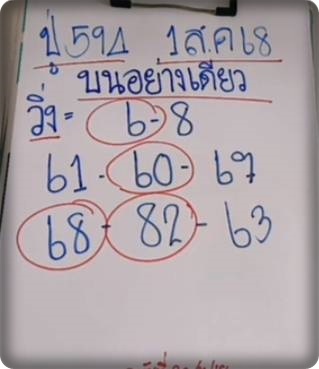 ปู่591 1ส.ค68
บนอย่างเดียว
วิ่ง= 6-8
61-60-67
68-82-63